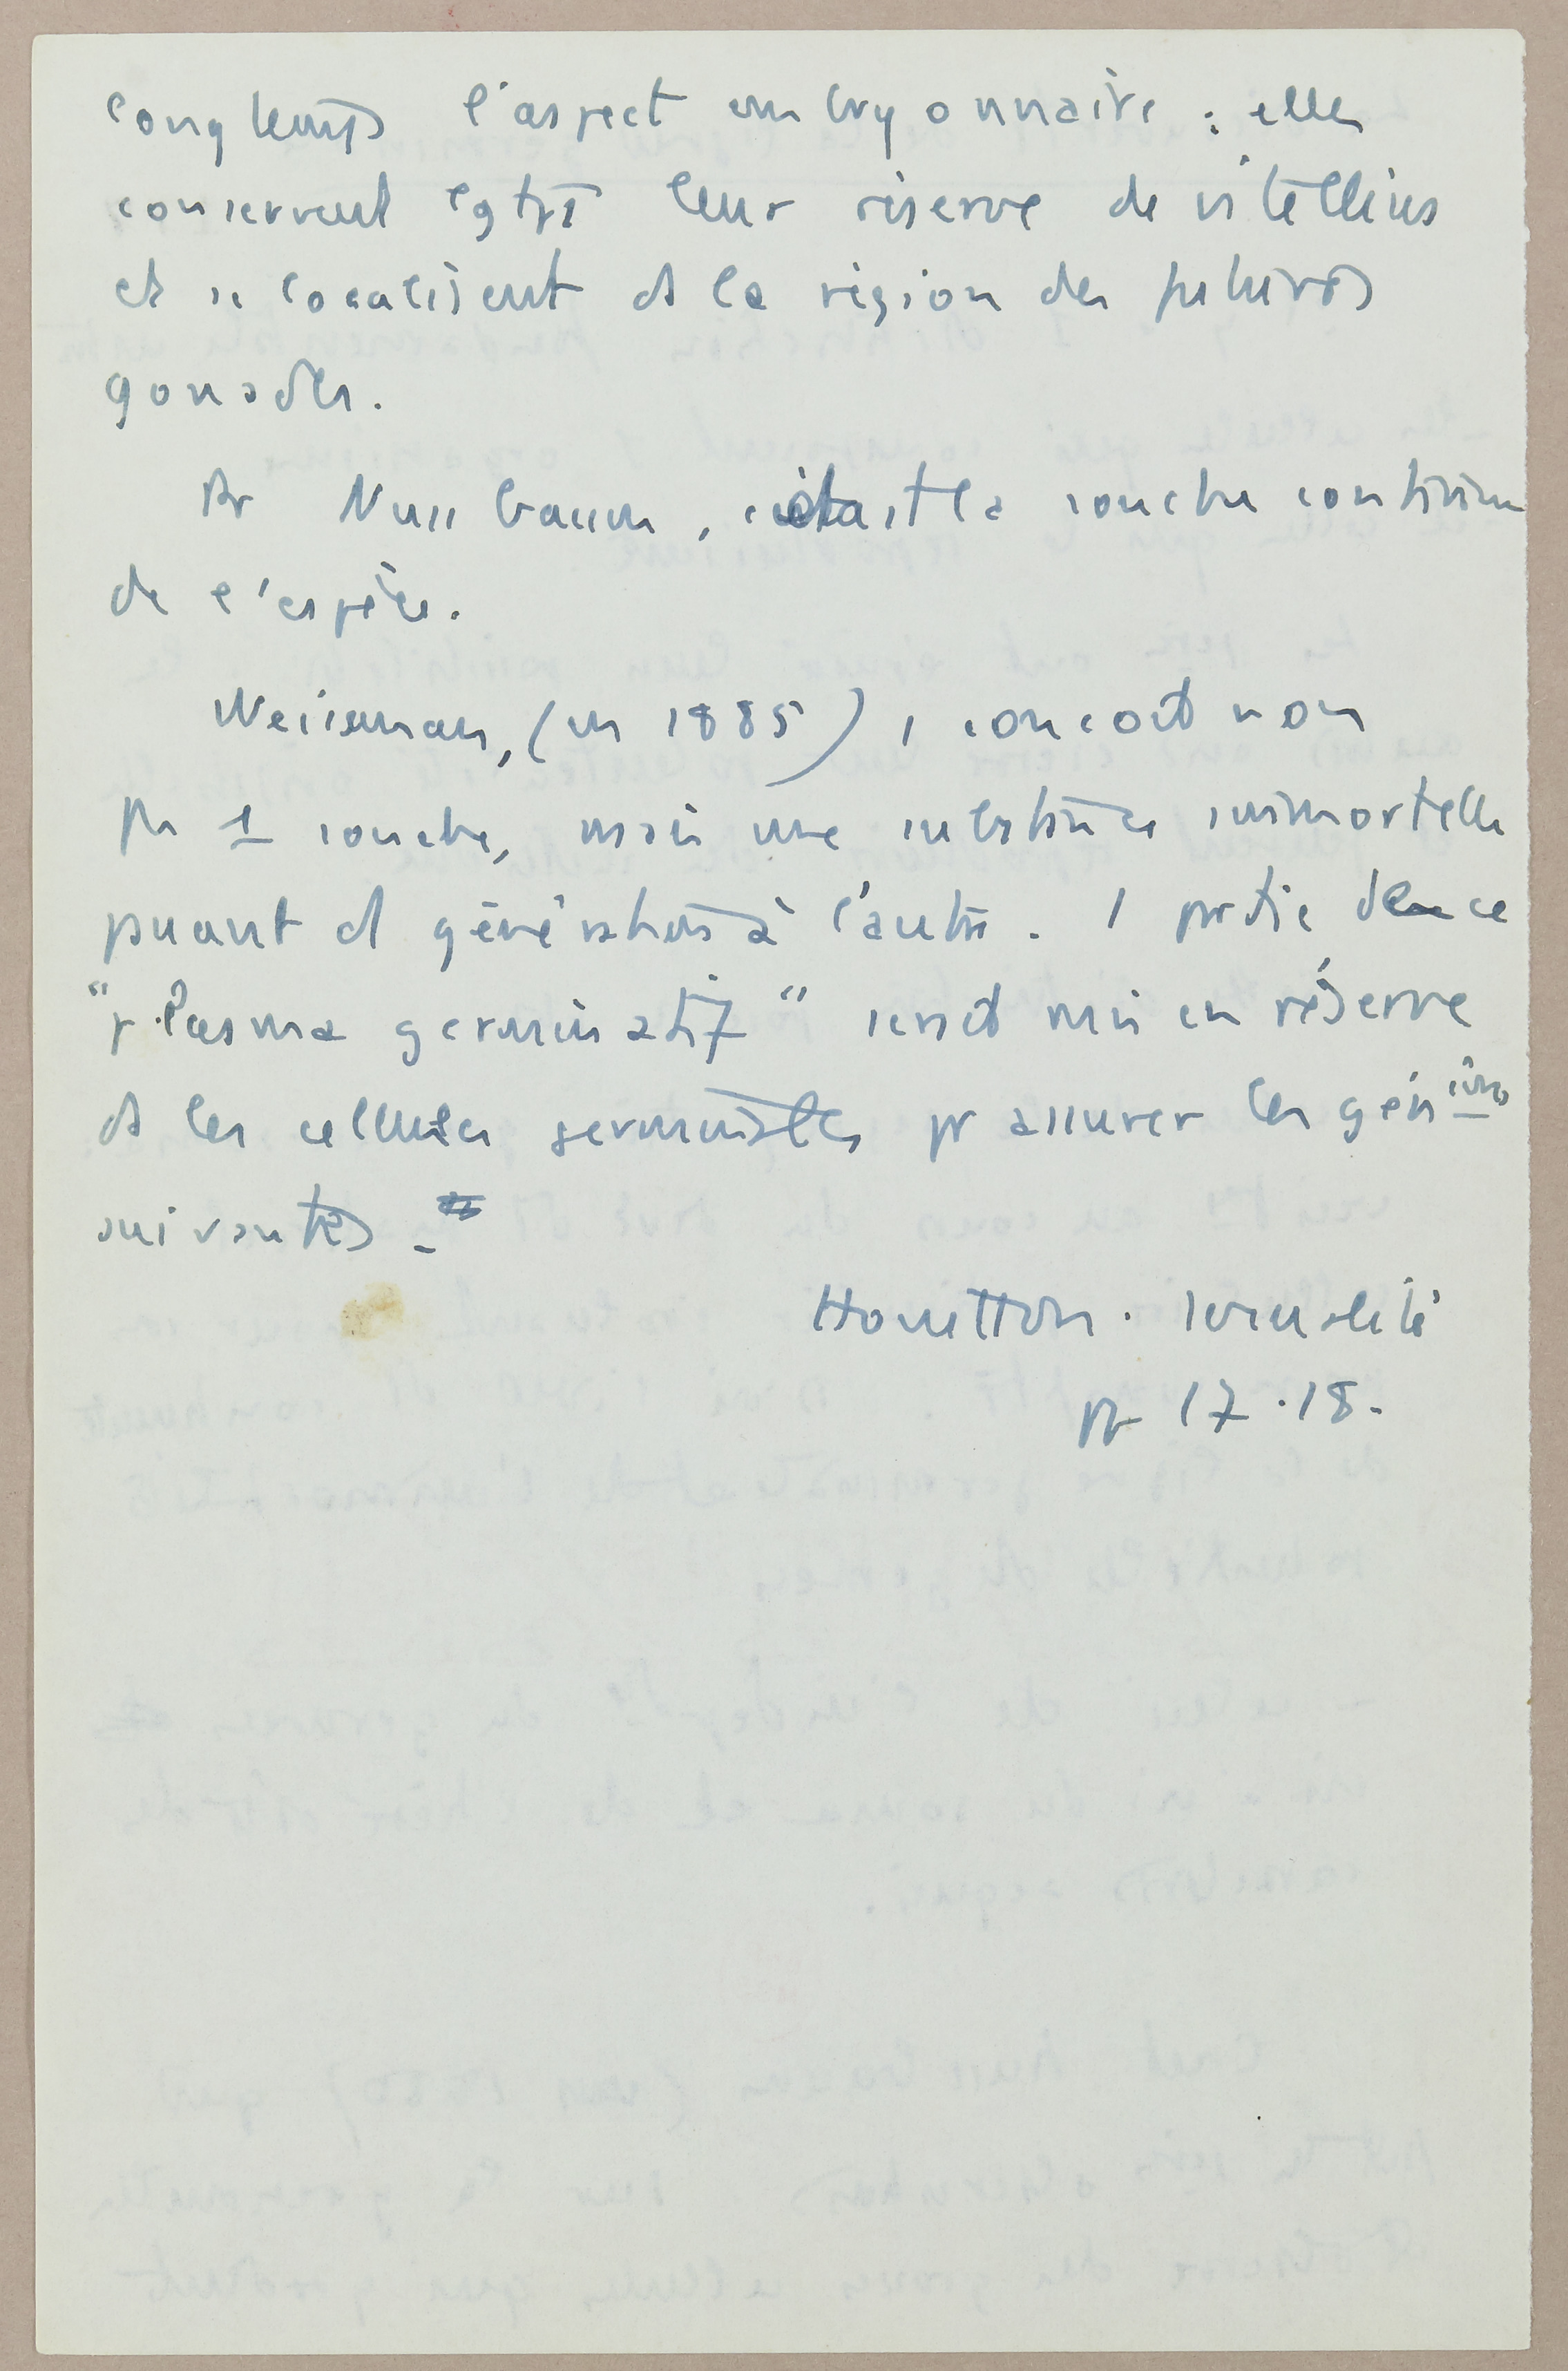 longtemps l'aspect embryonnaire : elles
conservent lgtps leur réserve de vitellus
et se localisent ds la région des futures
gonades.
Pr Nussbaum, c'était la souche continue
de l'espèce.
Weissman, (en 1885), conçoit non
pas 1 souche, mais une substance immortelle
passant d'1 génération à l'autre. 1 partie de ce
"plasma germinatif" serait mis en réserve
ds les cellules germinales pr assurer les génions
suivantes.
Houillon. sexualité
pp 17.18.